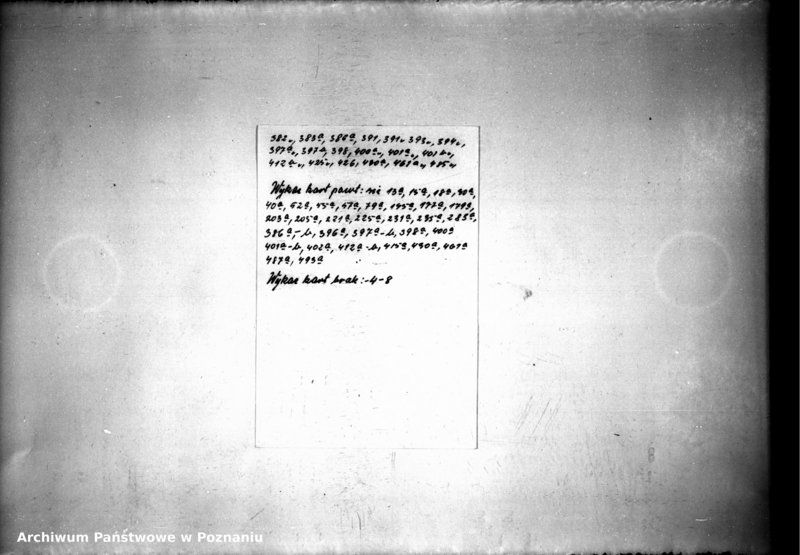 382v, 383a, 386a, 391, 391v 393v, 394v,
397av, 397b, 398, 400av, 401av, 401bv,
412av, 425v, 426, 430a, 461av, 485v
Wykaz kart powt: nr 13a, 15a, 18a, 30a,
40a, 42a, 45a, 47a, 79a, 145a, 177a, 179a,
203a, 205a, 221a, 225a, 231a, 235a, 285a,
386a-b, 396a, 397a-b, 398a, 400a
401a-b, 402a, 412a-b, 415a, 430a, 461a
487a, 493a
Wykaz kart brak: -4-8
Archiwum Państwowe w Poznaniu